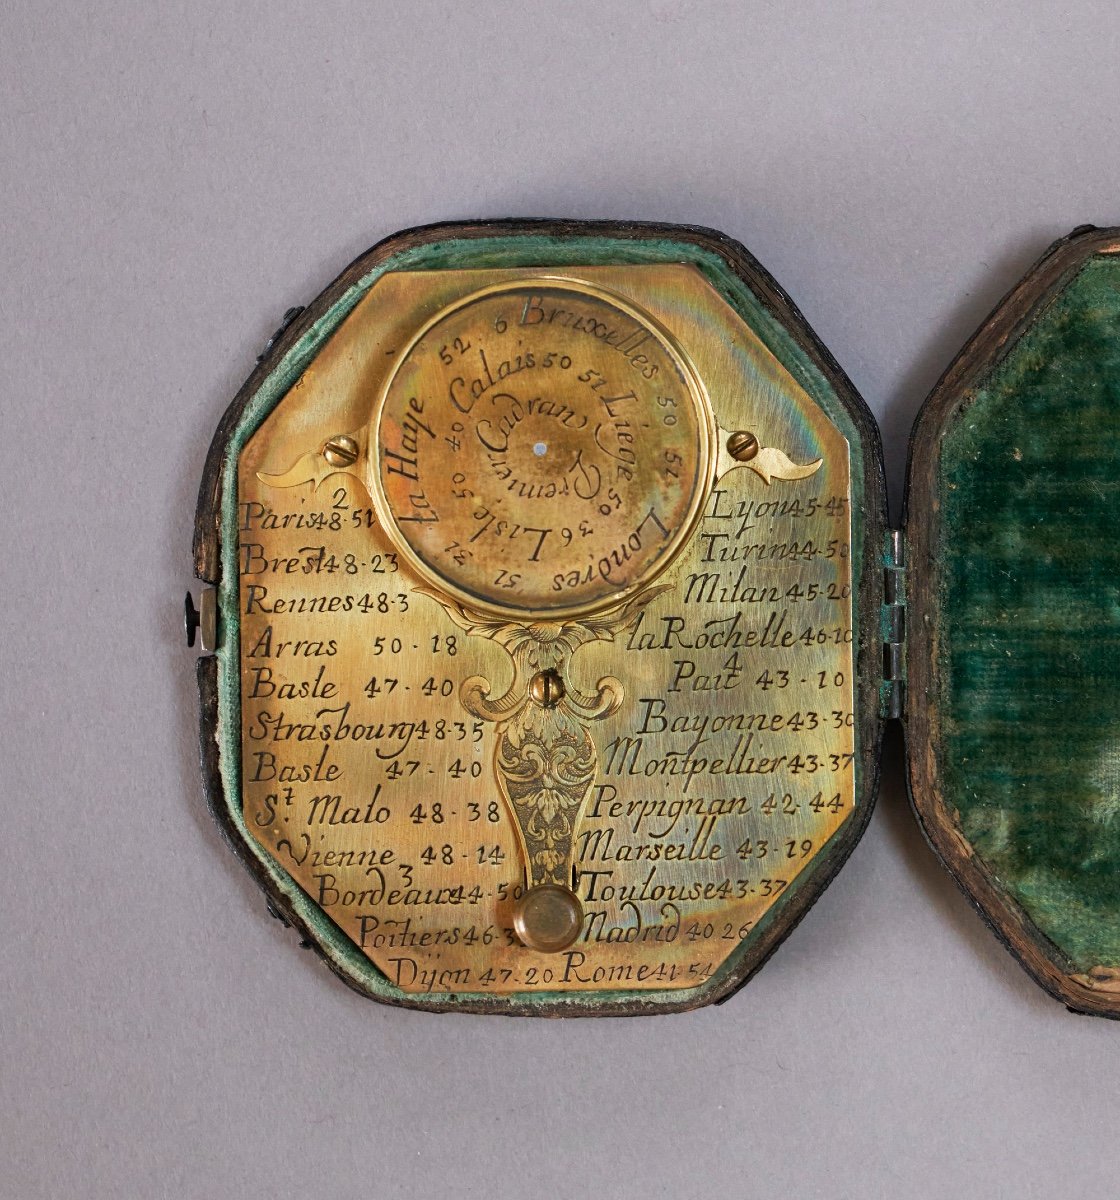 Bruxelles 50 51
Londres 51 31
La Haye 52 6
Calais 50 51
Liege 50 36
Lisle 50 40
Premier Cadran
2
Paris 48·51
Brest 48·23
Rennes 48·3
Arras 50·18
Basle 47·40
Strasbourg 48·35
Basle 47·40
St. Malo 48·38
Vienne 48·14
3
Bordeaux 44·50
Poitiers 46·3
Dijon 47·20
Lyon 45·45
Turin 44·50
Milan 45·20
la Rochelle 46·10
4
Pau 43·10
Bayonne 43·30
Montpellier 43·37
Perpignan 42·44
Marseille 43·19
Toulouse 43·37
Madrid 40 26
Rome 41·54